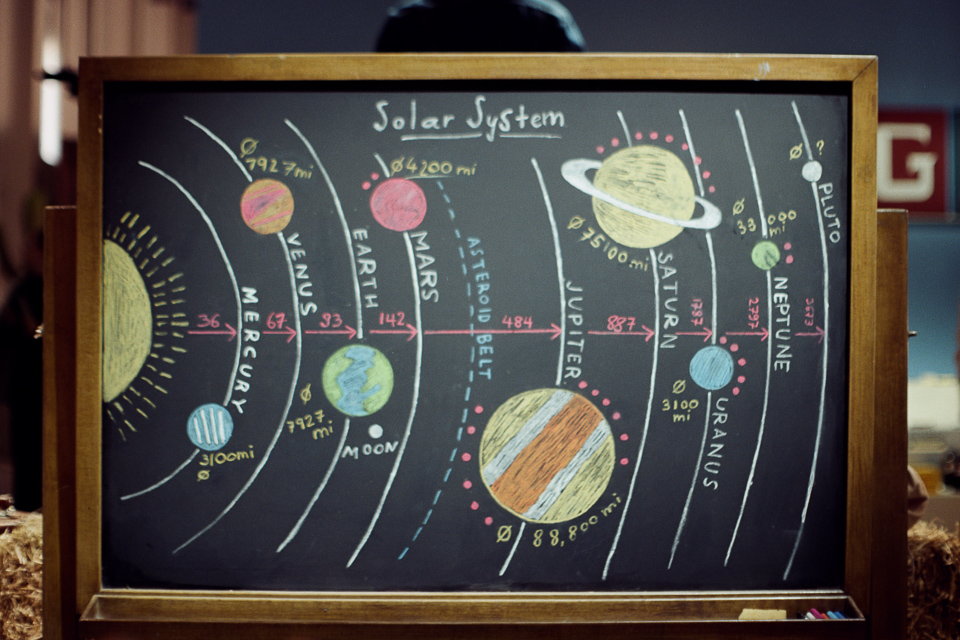 Solar System
Ø
7927 mi
Ø4200 mi
Ø ?
PLUTO
Ø
33 000
mi
Ø 75100 mi
VENUS
EARTH
MARS
ASTEROID BELT
SATURN
JUPITER
NEPTUNE
MERCURY
36
67
93
142
484
887
1787
2797
3673
Ø
7927
mi
Ø
3100
mi
URANUS
MOON
3100mi
Ø
Ø 88,800 mi
G